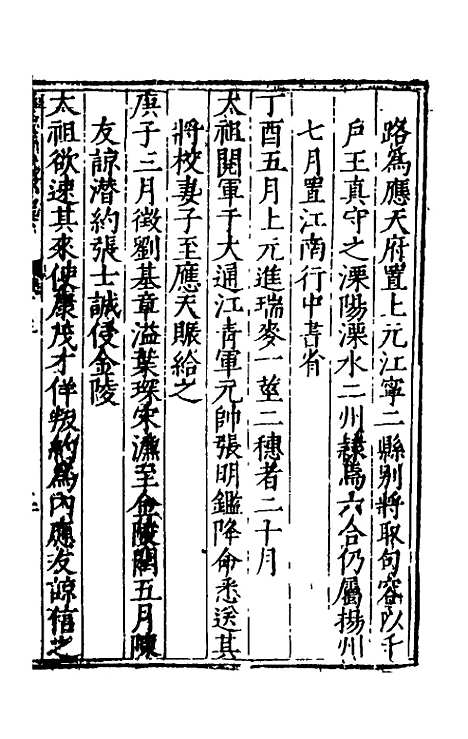 路爲應天府置上元江寧二縣别將取句容以千
戶王真守之溧陽溧水二州隸焉六合仍屬揚州
七月置江南行中書省
丁酉五月上元進瑞麥一莖二穗者二十月
太祖閱軍于大通江青軍元帥張明鑑降命悉送其
將校妻子至應天賑給之
庚子三月徵劉基章溢葉琛宋濂至金陵閏五月陳
友諒潛約張士誠侵金陵
太祖欲速其來使康茂才佯叛約爲内應友諒信之